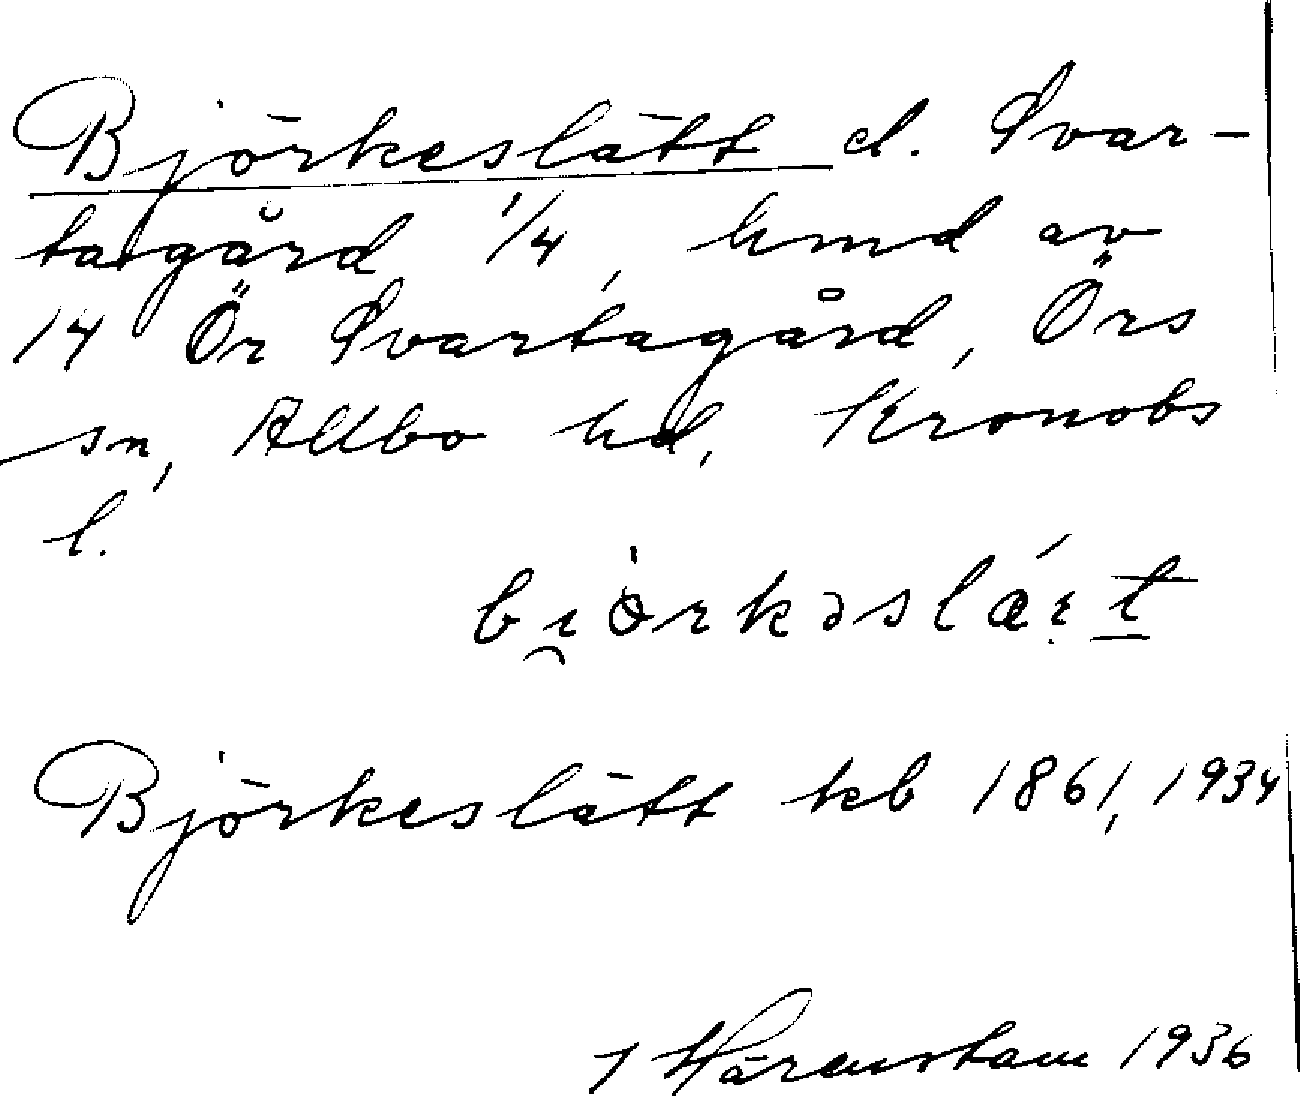 Björkeslätt d. Svar-
tagård 1/4, hmd av
14 Ör Svartagård, Örs
sn, Allbo hd, Kronobs
l.
bi̯òrkəslǽɛt
Björkeslätt kb 1861, 1934
Härenstam 1936